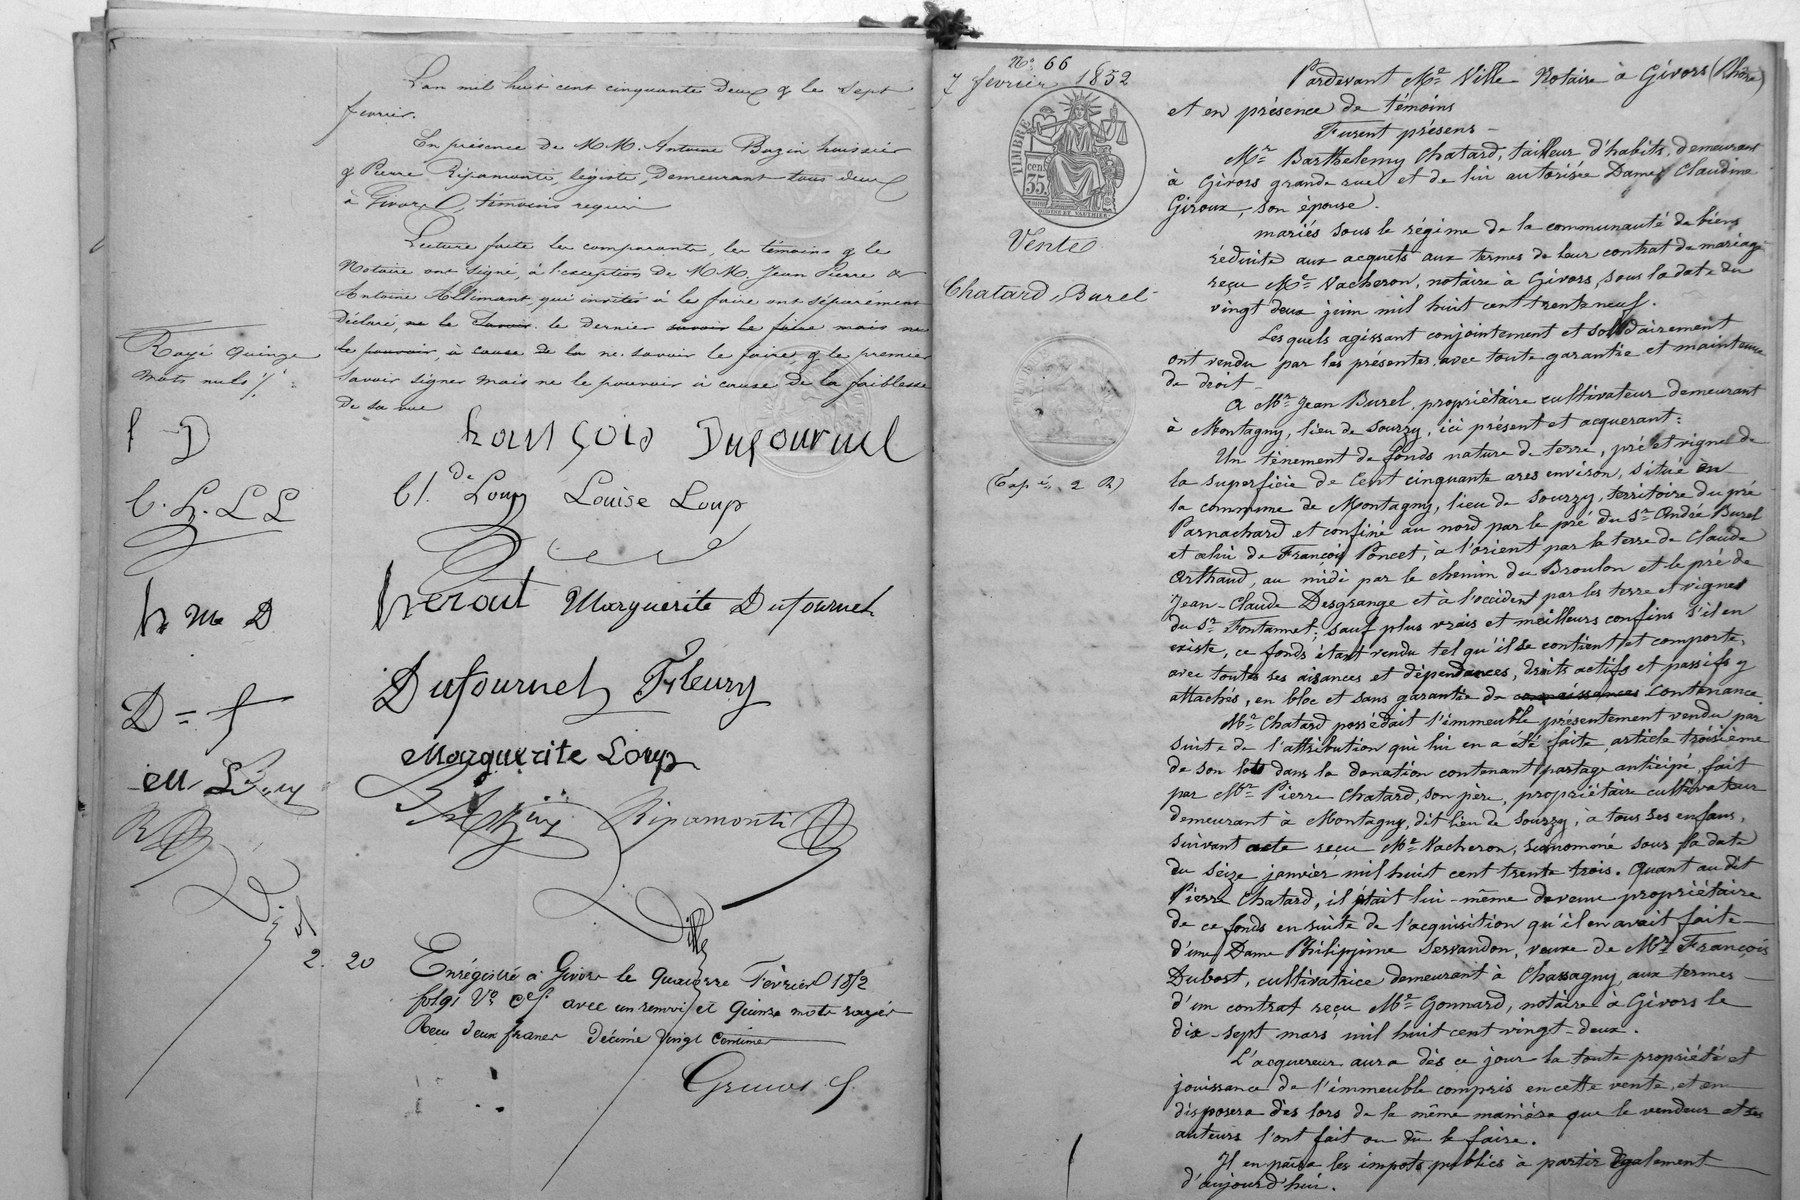 L'an mil huit cent cinquante deux & le sept
fevrier.
En présence de M.M. Antoine Bazin huissier
& Pierre Ripamonti, légiste, demeurant tous deux
à Givors, témoins requis
Lecture faite les comparants, les témoins & le
Notaire ont signé, à l'exception de M.M. Jean Pierre &
Antoine Allimant, qui invités à le faire ont séparément
Déclaré, ne le savoir. le dernier savoir le faire mais ne
le pouvoir, à cause de la ne. savoir le faire, & le premier
savoir signer mais ne le pouvoir à cause de la faiblesse
de sa vue
Rayé quinze
mots nuls
f D
françois Dufournel
C. L. L L
Cl. de Loup Louise Loup
h m D
herout Marguerite Dufournel
D = f
Dufournel Fleury
Marguerite Loup
Bazin Ripamonti
Ville
2. 20
Enrégistré à Givors le quatorze Février 1852
fol 91 Vo Ces avec un renvoi et quinze mots rayés
Recu deux francs Décime vingt centimes
No. 66
7 fevrier 1852
TIMBRE
35 cen.
Vente
Chatard, Burel
Pardevant Me. Ville Notaire à Givors (Rhône)
et en présence de témoins
Furent présens -
Mr. Barthelemy Chatard, tailleur d'habits, demeurant
à Givors grande rue et de lui autorisée Dame Claudine
Giroux, son épouse.
mariés sous le régime de la communauté de biens
réduite aux acquets aux termes de leur contrat de mariage
reçu Me. Vacheron, notaire à Givors, sous la date du
vingt deux juin mil huit cent trente neuf.
Lesquels agissant conjointement et solidairement
ont vendu par les présentes avec toute garantie et maintenue
de droit
A Mr. Jean Burel, propriétaire cultivateur demeurant
à Montagny, lieu de Sourzy, ici présent et acquerant:
Un tènement de fonds nature de terre, pré et vigne de
la superficie de Cent cinquante ares environ, situé en
la commune de Montagny, lieu de Sourzy, territoire du pré
Parnachard et confiné au nord par le pré du Sr. André Burel
et celui de François Poncet, à l'orient par la terre de Claude
Arthaud, au midi par le chemin du Broulon et le pré de
Jean-Claude Desgrange et à l'occident par les terre et vigne
du Sr. Fontannet; sauf plus vrais et meilleurs confins s'il en
existe, ce fonds étant vendu tel qu'il se contient et comporte,
avec toutes ses aisances et dépendances, droits actifs et passifs y
attachés, en bloc et sans garantie de connaissances contenance
Mr. Chatard possédait l'immeuble présentement vendu par
suite de l'attribution qui lui en a été faite, article troisième
de son lot dans la donation contenant partage anticipé, fait
par Mr. Pierre Chatard, son père, propriétaire cultivateur
demeurant à Montagny, dit lieu de Sourzy, à tous ses enfans,
suivant acte reçu Me. Vacheron, surnommé sous la date
du seize janvier mil huit cent trente trois. Quant au dit
Pierre Chatard, il était lui-même devenu propriétaire
de ce fonds ensuite de l'acquisition qu'il en avait faite
d'une Dame Philippine Servandon, veuve de Mr. François
Dubost, cultivatrice demeurant à Chassagny, aux termes
d'un contrat reçu Me. Gonnard, notaire à Givors le
dix-sept mars mil huit cent vingt-deux.
L'acquereur aura dès ce jour la toute propriété et
jouissance de l'immeuble compris en cette vente, et en
disposera dès lors de la même manière que le vendeur et ses
auteurs l'ont fait ou dû le faire.
Il en païra les impots publics à partir également
d'aujourd'hui.